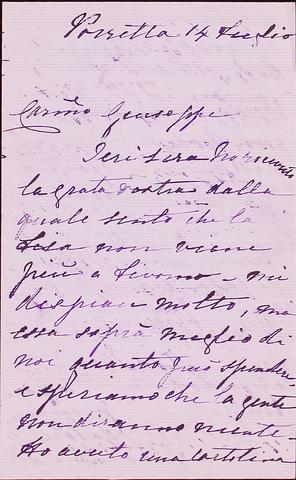 Porretta 14 Luglio
Carmo Giuseppe
Ieri sera
la grata vostra dalla
quale sento che la
Lisa non viene
più a Livorno - mi
dispiace molto, ma
essa saprà meglio di
noi quanto può spendere
e speriamo che la gente
non diranno niente -
Ho avuto una cartolina